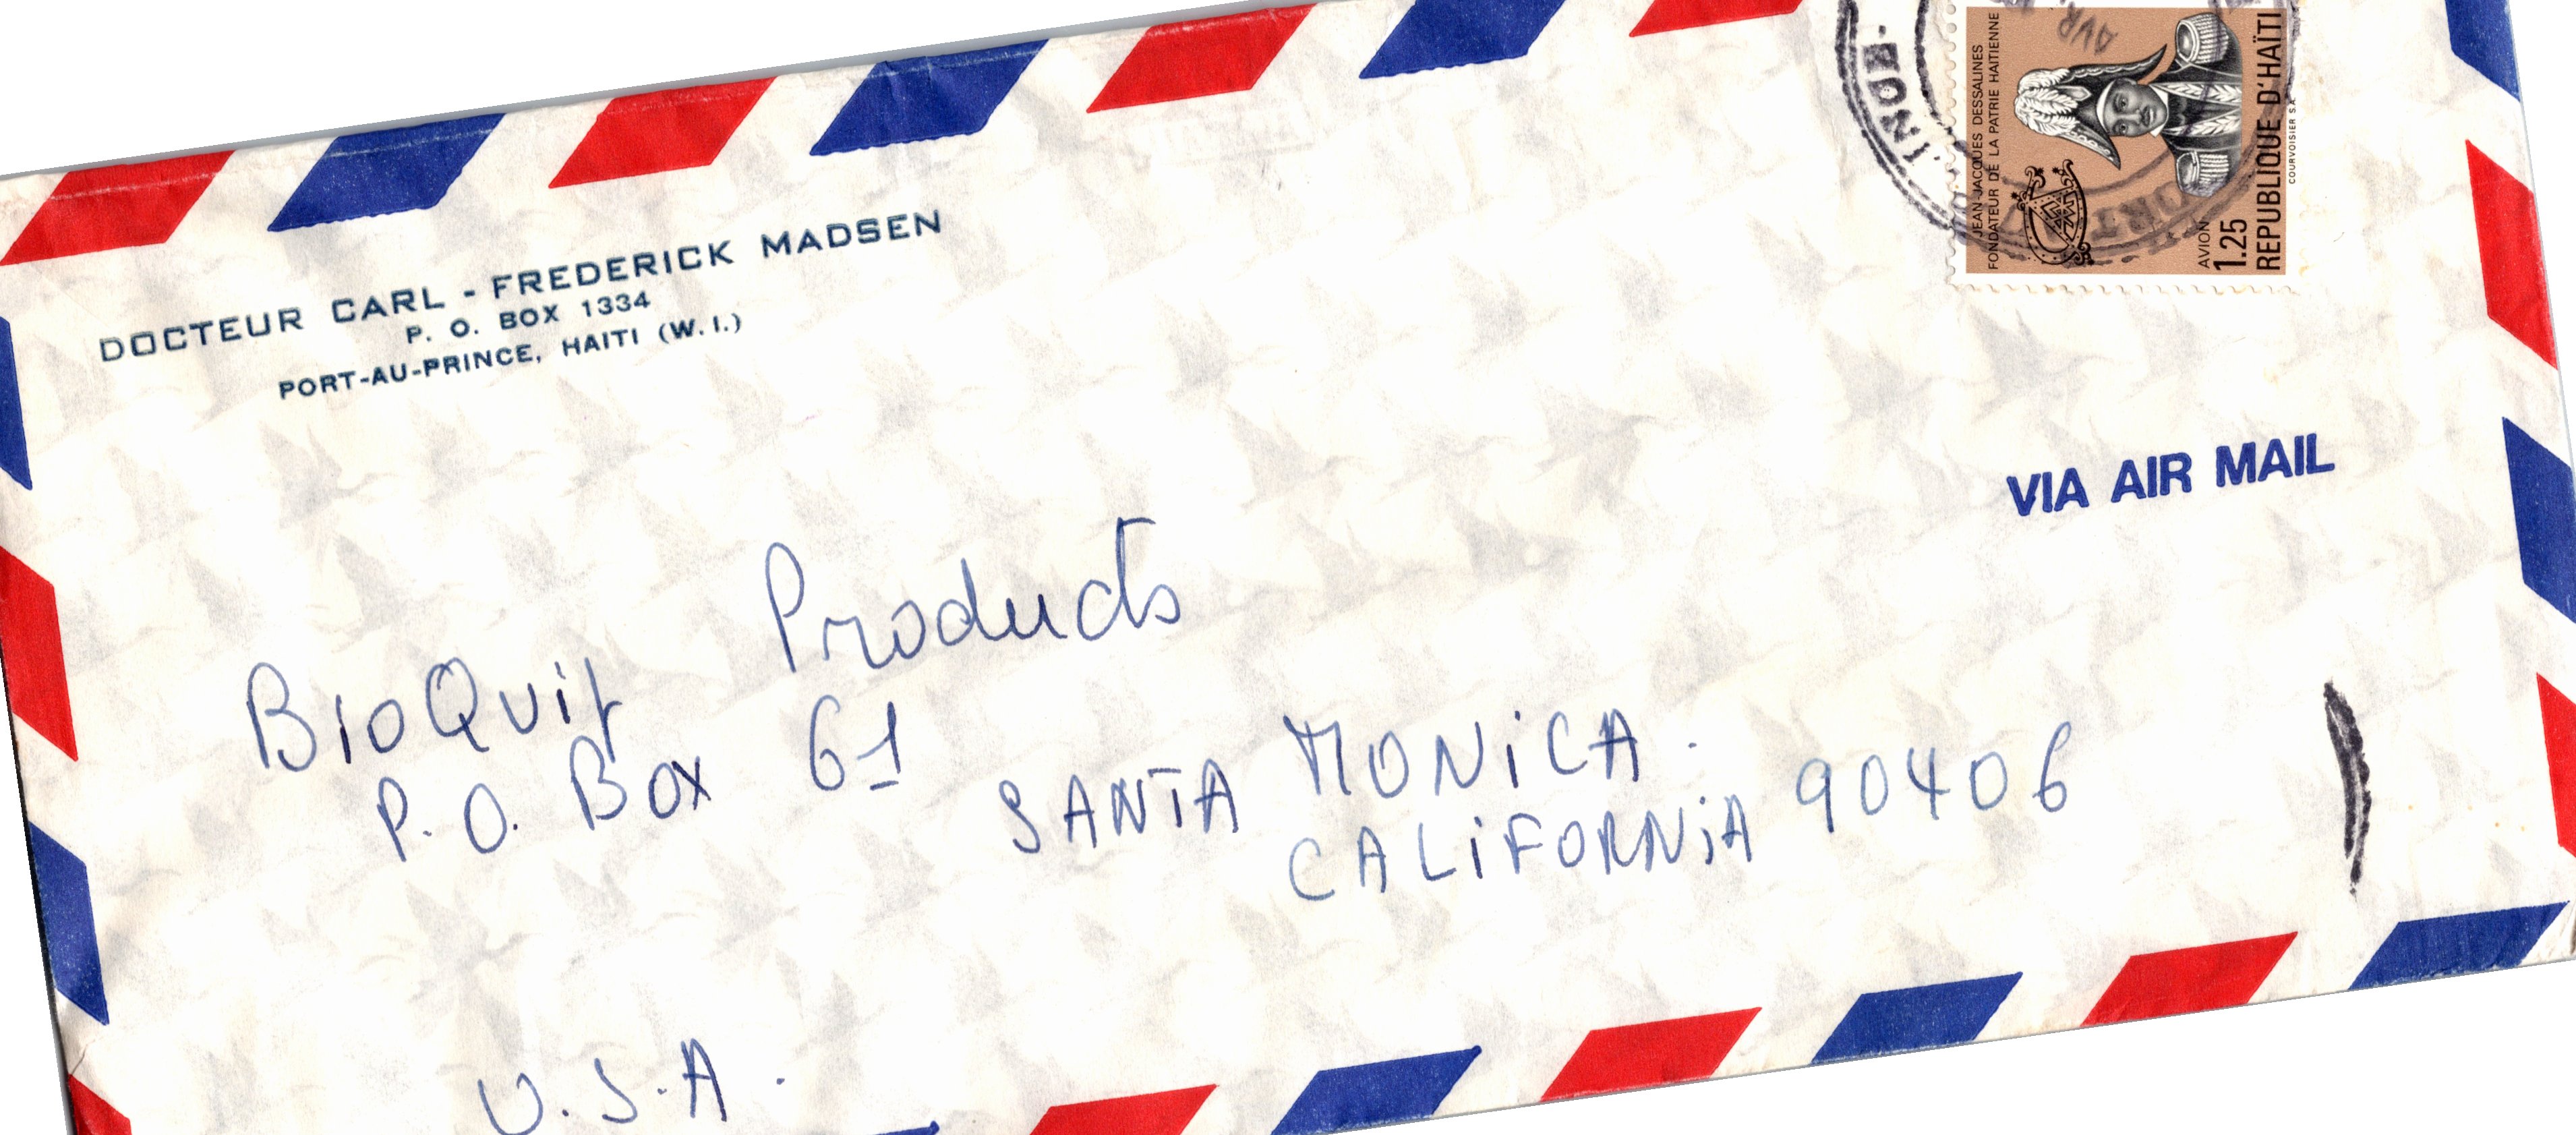 DOCTEUR CARL - FREDERICK MADSEN
P. O. BOX 1334
PORT-AU-PRINCE, HAITI (W. I.)
JEAN JACQUES DESSALINES
FONDATEUR DE LA PATRIE HAITIENNE
AVION
1.25
REPUBLIQUE D'HAÏTI
COURVOISIER S.A.
AVR.
VIA AIR MAIL
BioQuip Products
P. O. Box 61
SANTA MONiCA.
CALiFORNiA 90406
U.S.A.